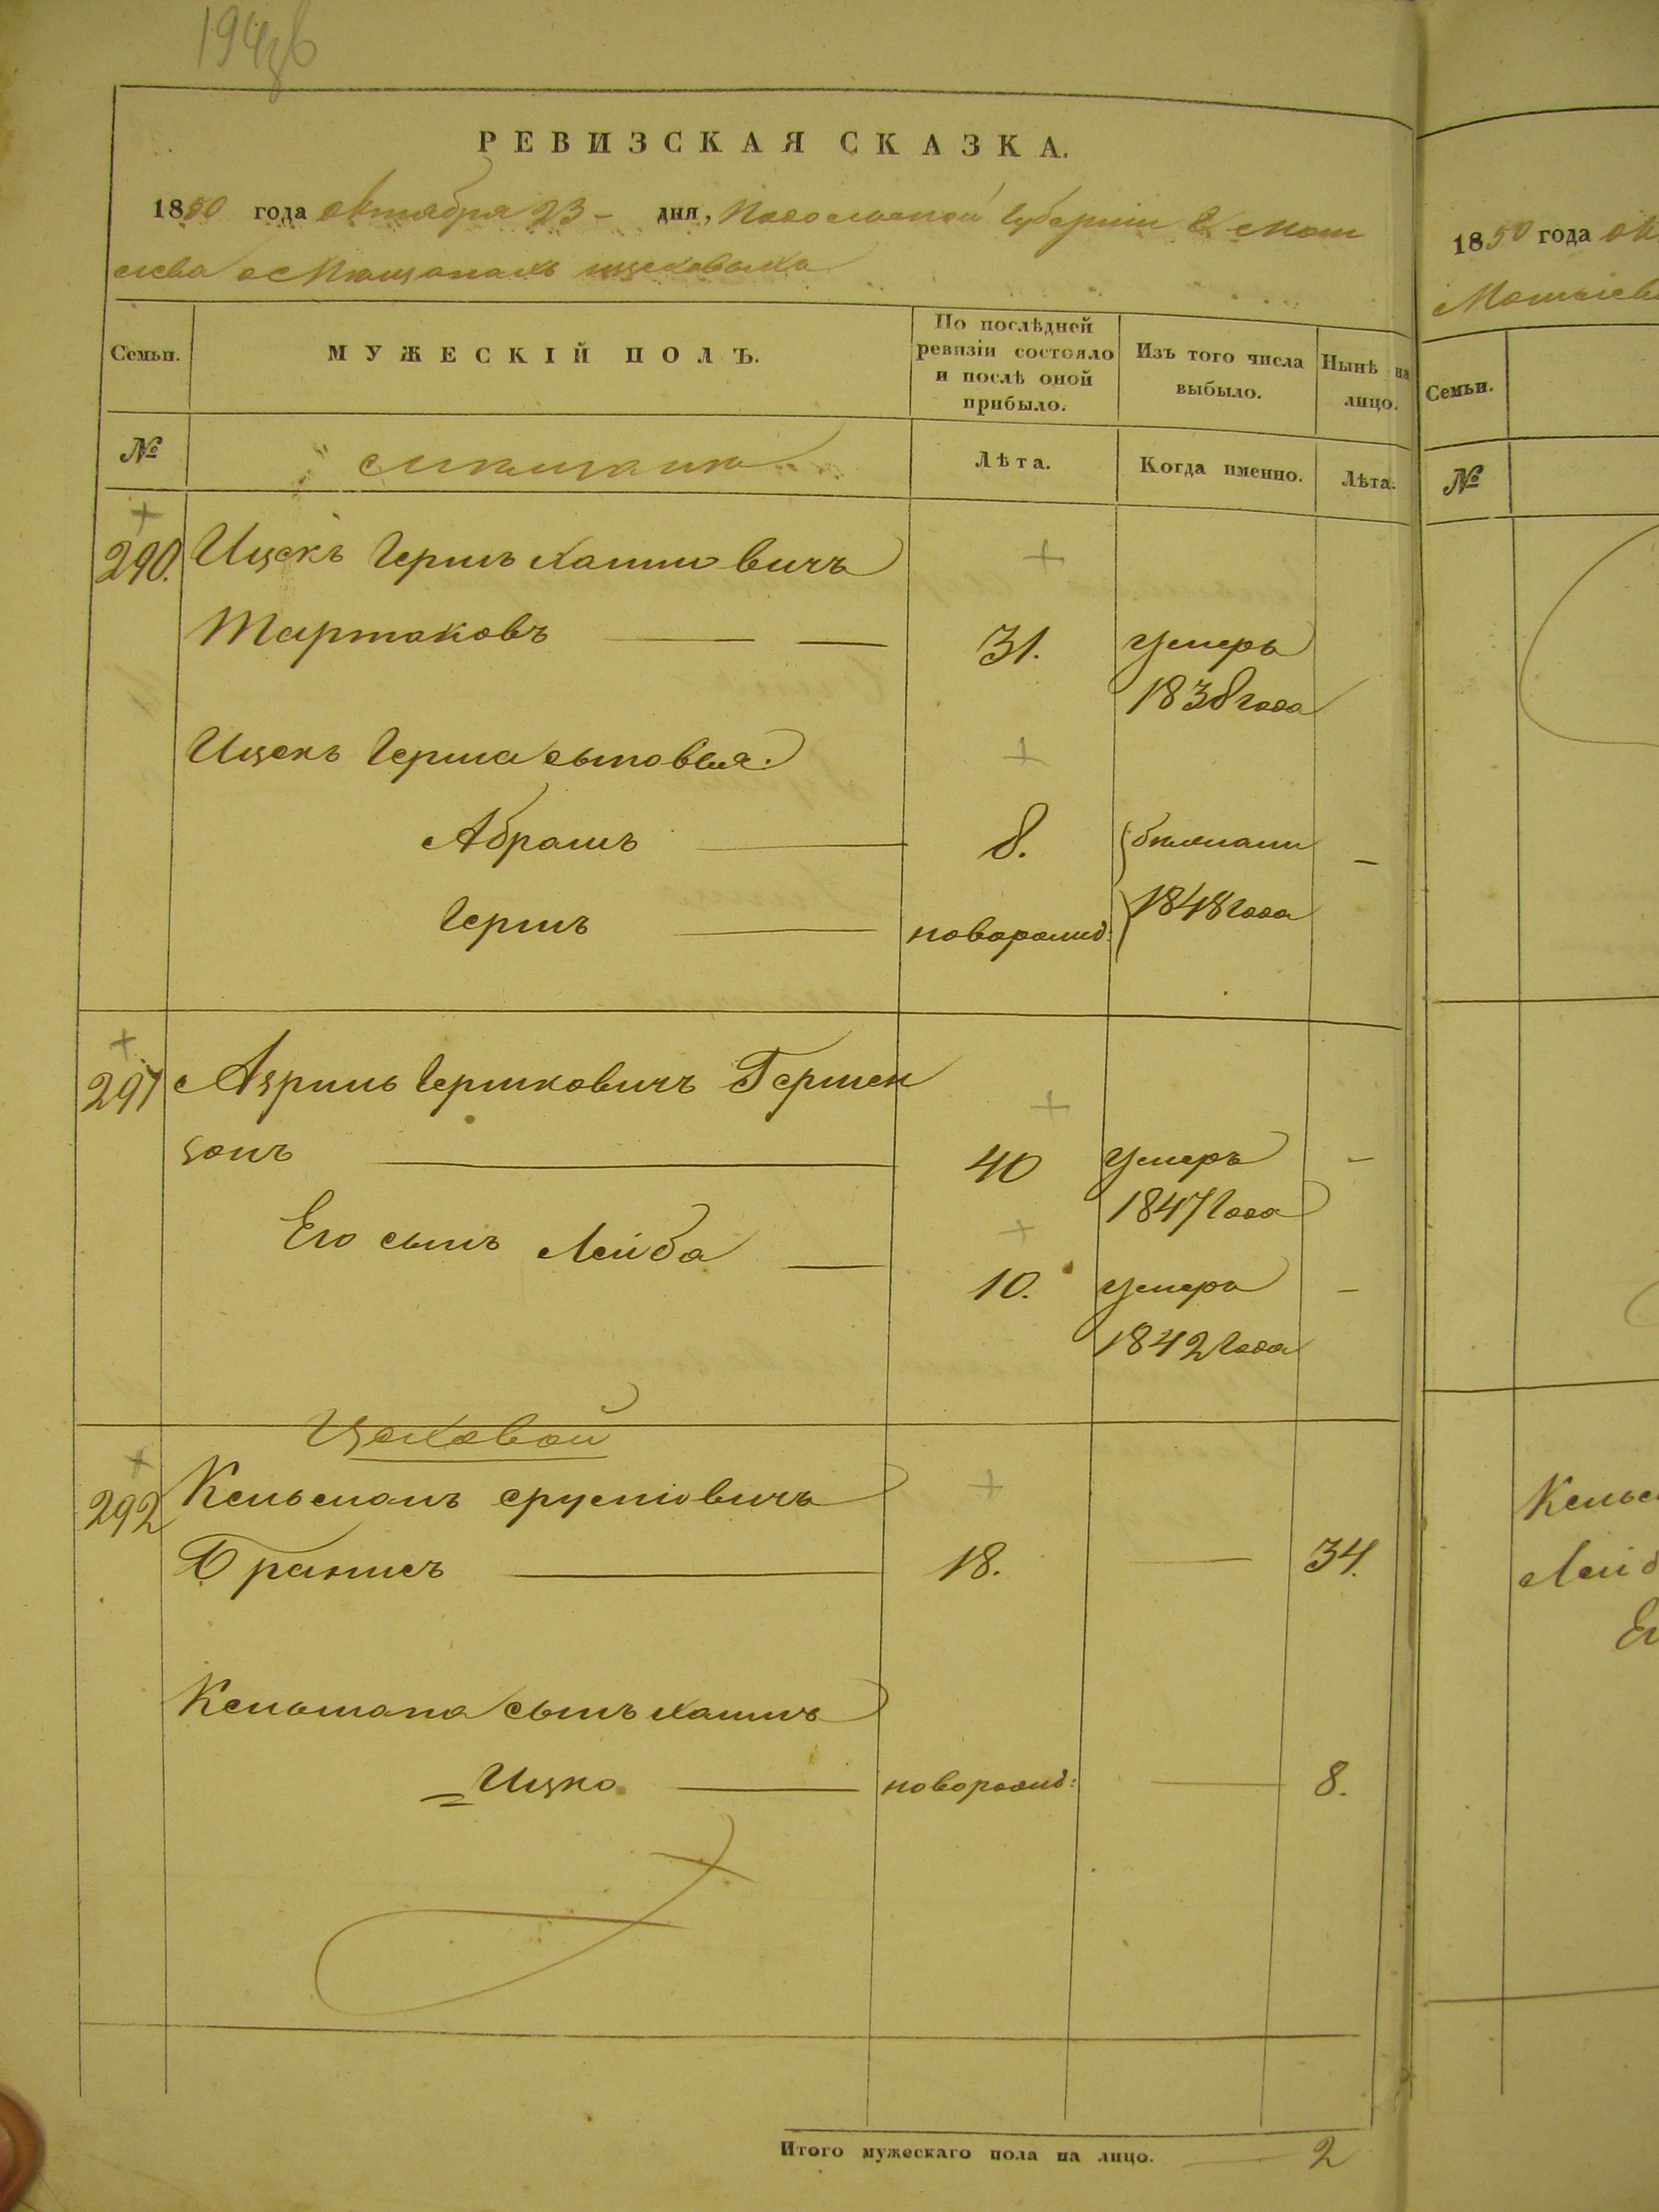 194об
РЕВИЗСКАЯ СКАЗКА.
1850 года октября 23 – дня, Подольской Губерніи Г. Мог
илева о Мѣщанахъ цеховыхъ
Семьи.
МУЖЕСКІЙ ПОЛЪ.
По послѣдней
ревизіи состояло
и послѣ оной
прибыло.
Изъ того числа
выбыло.
Нынѣ на
лицо.
№
Мѣщане
Лѣта.
Когда именно.
Лѣта.
290. Ицекъ Гершъ Хаимовичъ
Тартаковъ 31. умеръ
1838 года
Ицекъ Герша сыновья.
Абрамъ 8. бѣжали –
Гершъ новорожд: 1848 года
291 Азриль Гершковичъ Гершен
зонъ 40 умеръ –
1847 года
Его сынъ Лейба 10. умеръ –
1842 года
Цеховой
292 Кельманъ Сруліовичъ
18. 34.
Кельмана сынъ Хаимъ
Ицко новорожд: 8.
Итого мужескаго пола на лицо. 2
1850 года ок
Могилев
Семьи.
№
Кельм
Лейб
Ег